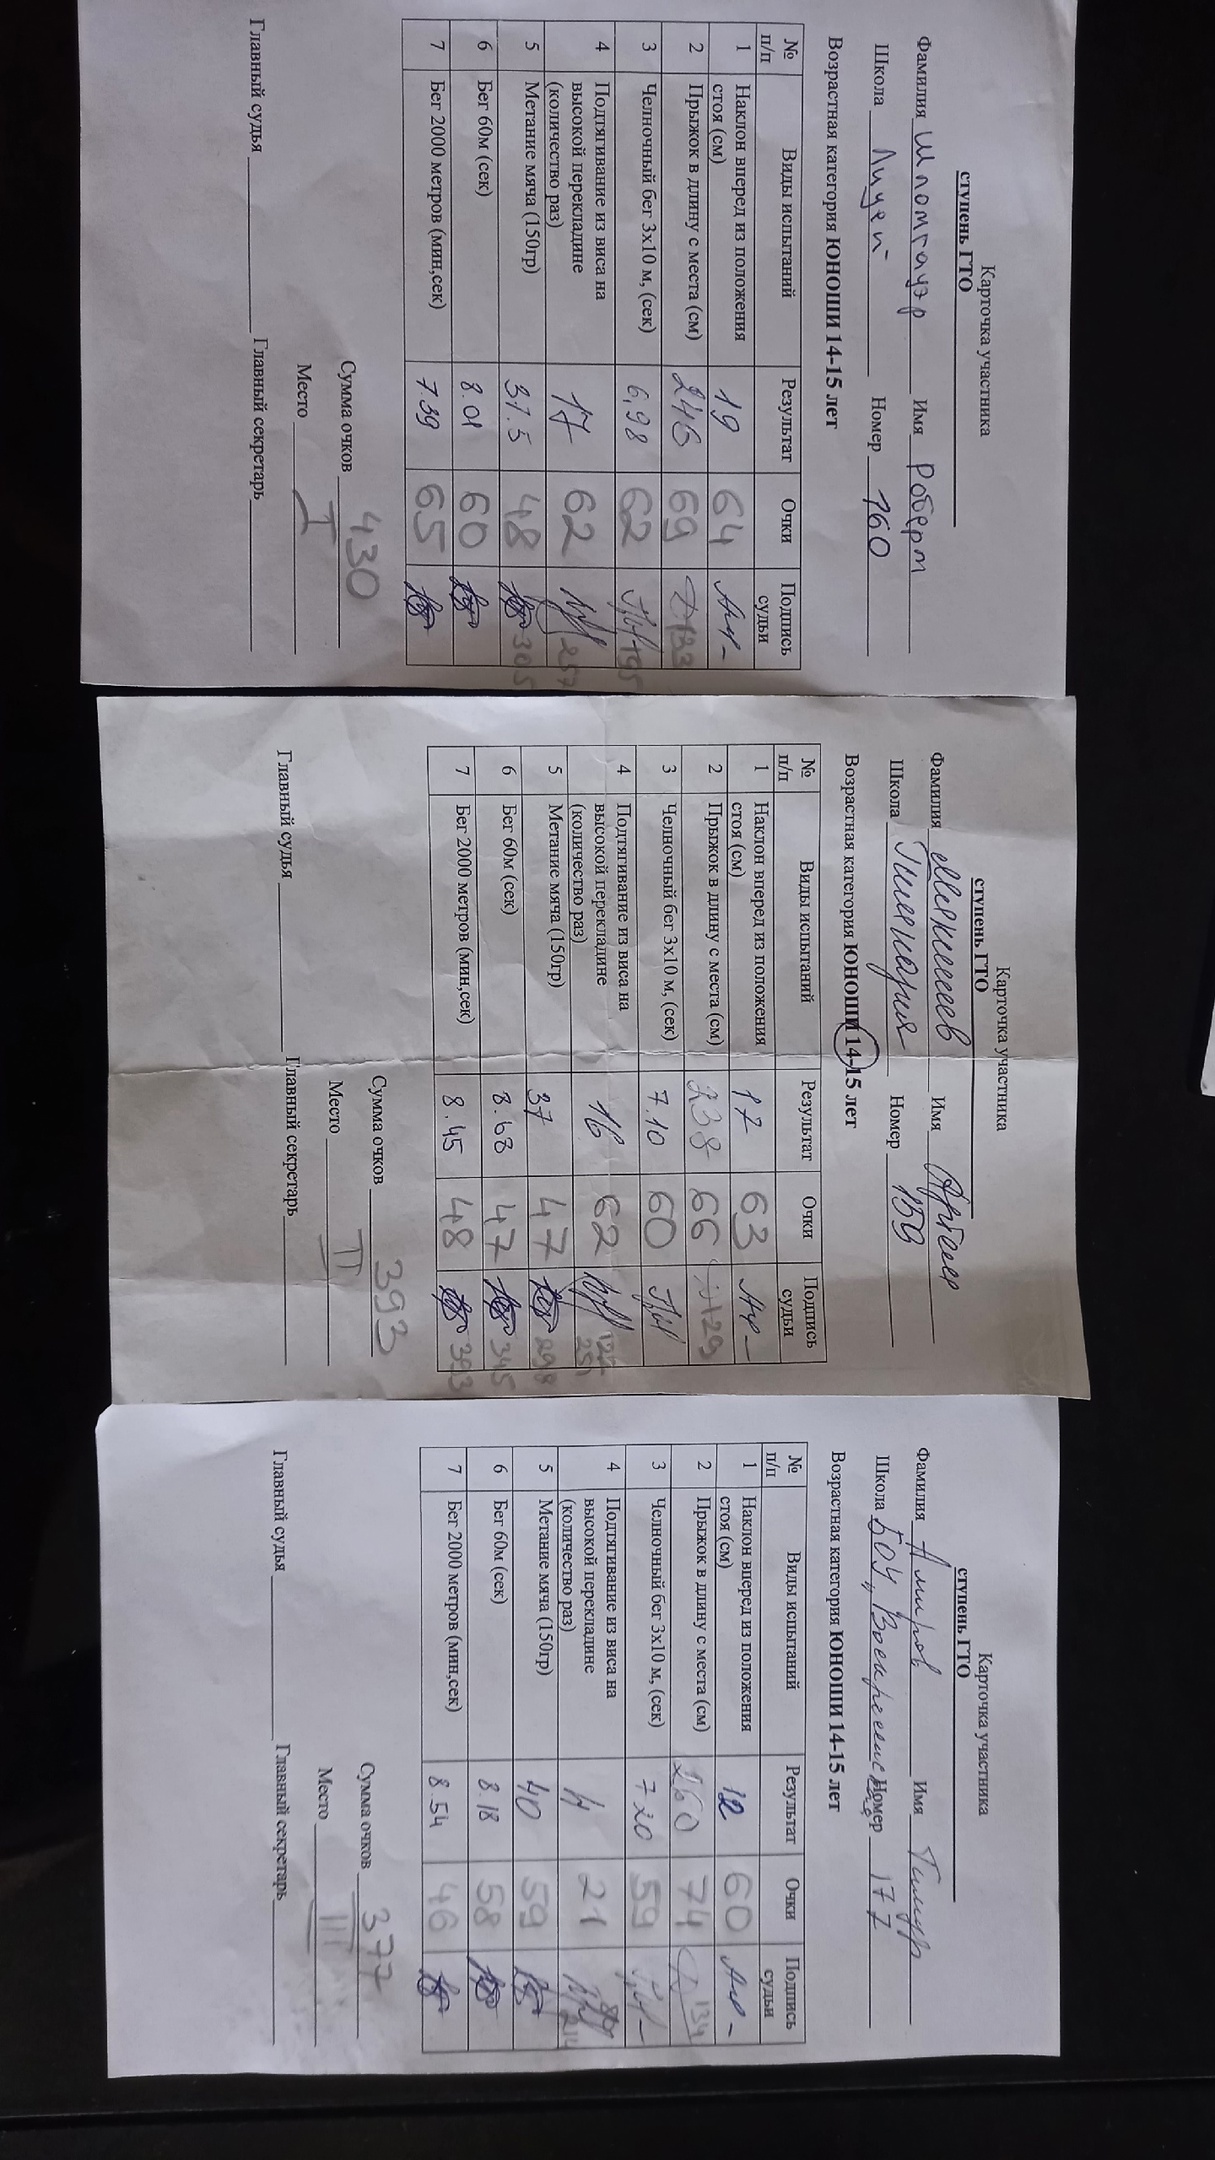 Карточка участника
ступень ГТО
Фамилия Шпомгауэр Имя Роберт
Школа Лицей Номер 160
Возрастная категория ЮНОШИ 14-15 лет
№ п/п Виды испытаний Результат Очки Подпись судьи
1 Наклон вперед из положения стоя (см) 19 64
2 Прыжок в длину с места (см) 246 69 133
3 Челночный бег 3х10 м, (сек) 6,98 62 195
4 Подтягивание из виса на высокой перекладине (количество раз) 17 62 257
5 Метание мяча (150гр) 37.5 48 305
6 Бег 60м (сек) 8.01 60
7 Бег 2000 метров (мин,сек) 7.39 65
Сумма очков 430
Место I
Главный судья Главный секретарь
Карточка участника
ступень ГТО
Фамилия Имя Артем
Школа Гимназия Номер 159
Возрастная категория ЮНОШИ 14-15 лет
№ п/п Виды испытаний Результат Очки Подпись судьи
1 Наклон вперед из положения стоя (см) 17 63
2 Прыжок в длину с места (см) 238 66 129
3 Челночный бег 3х10 м, (сек) 7.10 60
4 Подтягивание из виса на высокой перекладине (количество раз) 16 62 251
5 Метание мяча (150гр) 37 47 298
6 Бег 60м (сек) 8.68 47 345
7 Бег 2000 метров (мин,сек) 8.45 48 393
Сумма очков 393
Место II
Главный судья Главный секретарь
Карточка участника
ступень ГТО
Фамилия Амиров Имя Тимур
Школа БОУ "Воскресенская Номер 177
Возрастная категория ЮНОШИ 14-15 лет
№ п/п Виды испытаний Результат Очки Подпись судьи
1 Наклон вперед из положения стоя (см) 12 60
2 Прыжок в длину с места (см) 260 74 134
3 Челночный бег 3х10 м, (сек) 7.20 59
4 Подтягивание из виса на высокой перекладине (количество раз) 4 21 214
5 Метание мяча (150гр) 40 59
6 Бег 60м (сек) 8.18 58
7 Бег 2000 метров (мин,сек) 8.54 46
Сумма очков 377
Место III
Главный судья Главный секретарь